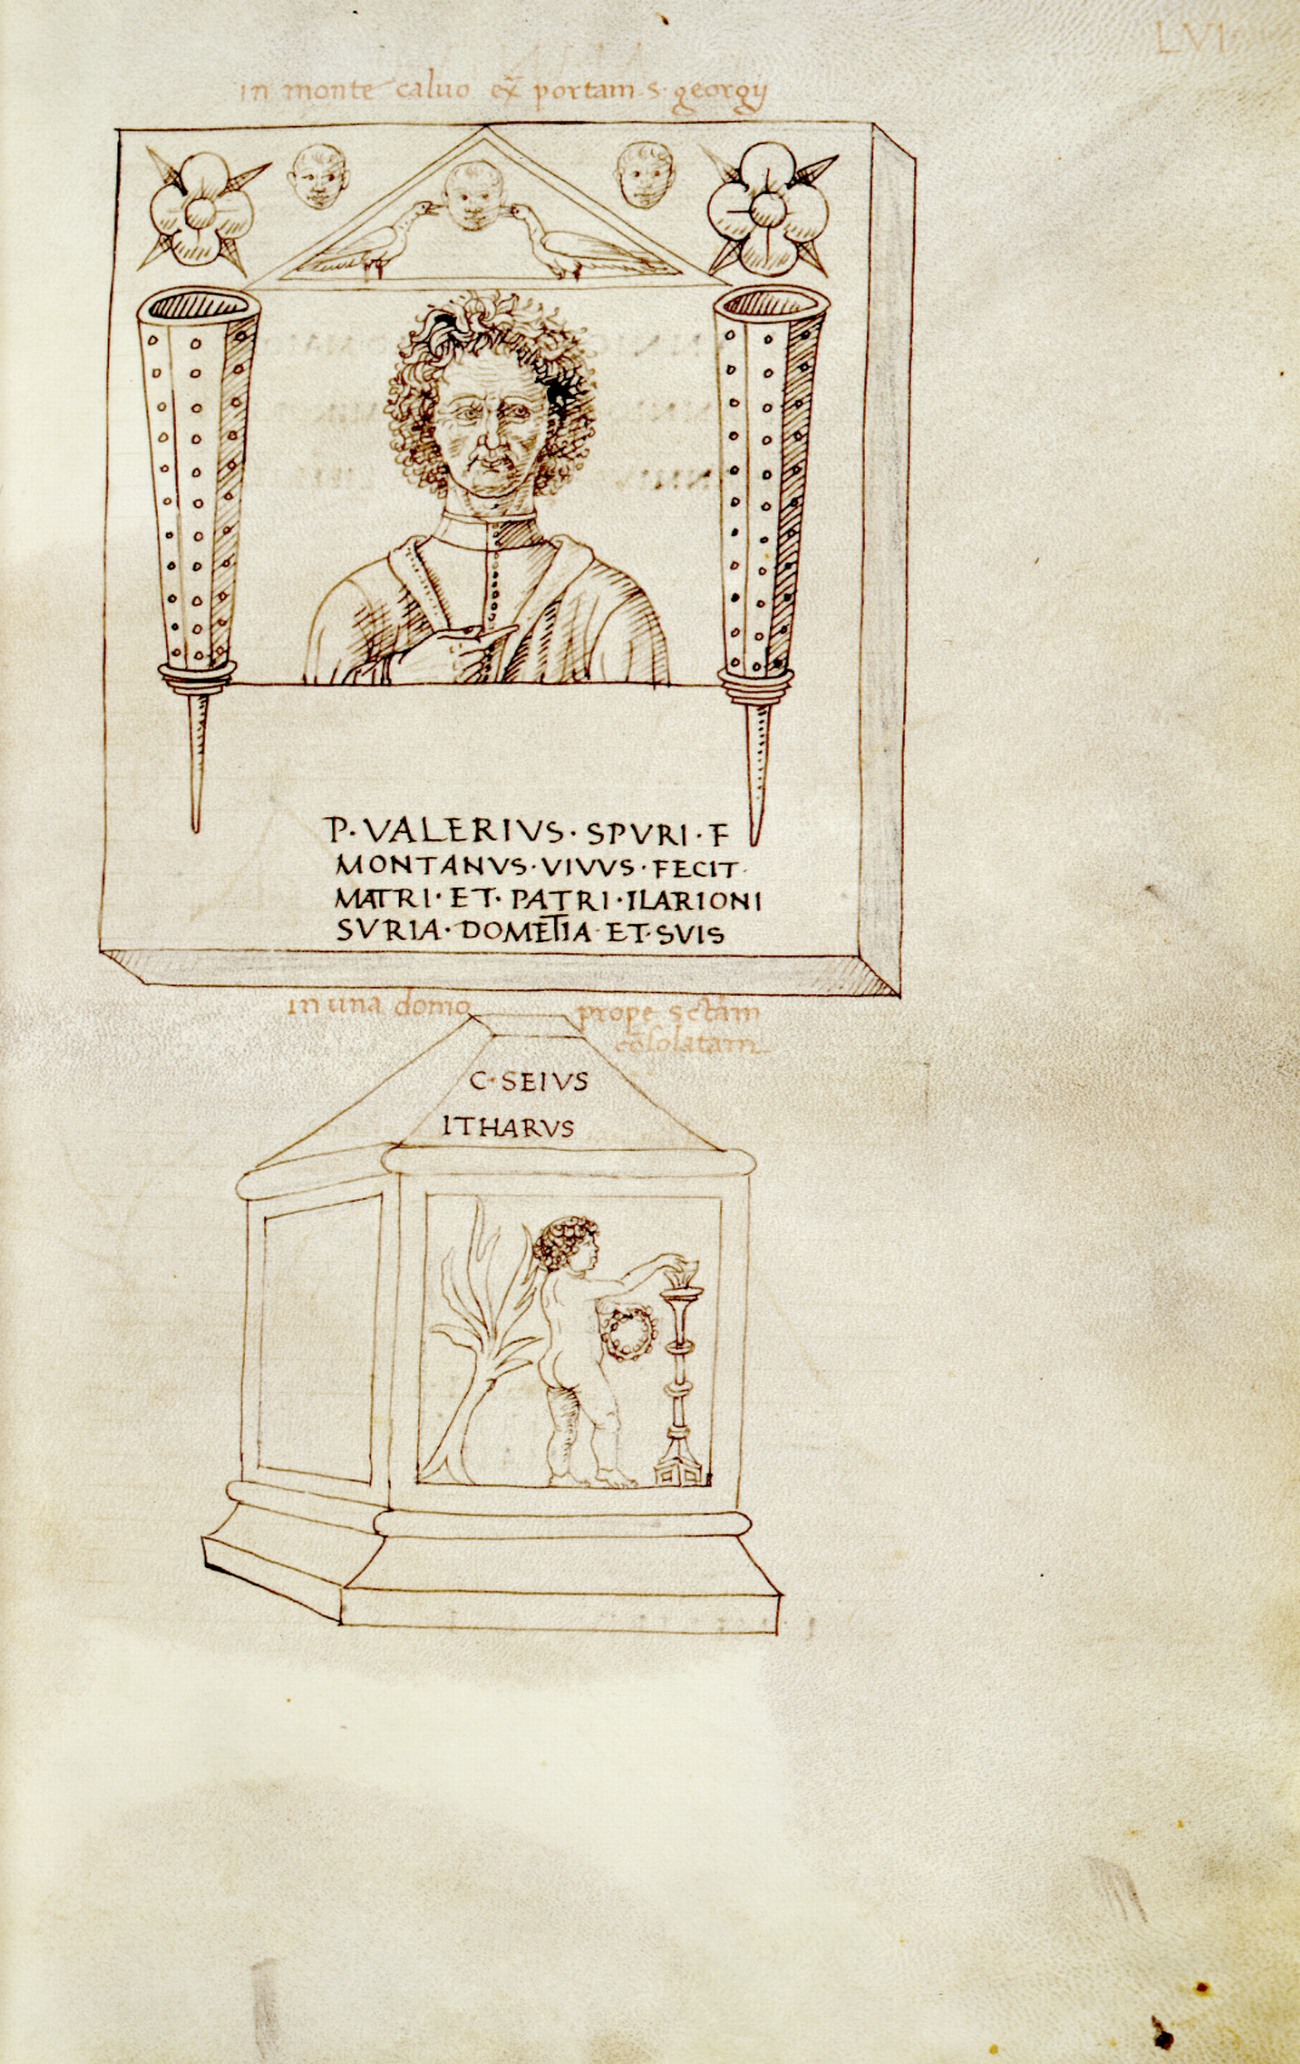 LVI
in monte caluo ex̃ portam s. georgij
P · VALERIVS · SPVRI · F
MONTANVS · VIVVS · FECIT ·
MATRI · ET · PATRI · ILARIONI
SVRIA · DOMETIA · ET · SVIS
in una domo prope sctãm
cõsolatam
C · SEIVS
ITHARVS